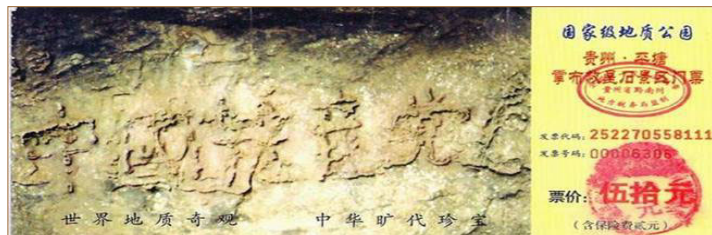 世界地质奇观 中华旷代珍宝
国家级地质公园
贵州·平塘
掌布藏字石景区门票
发票代码：252270558111
发票号码：00006306
票价：伍拾元
（含保险费贰元）